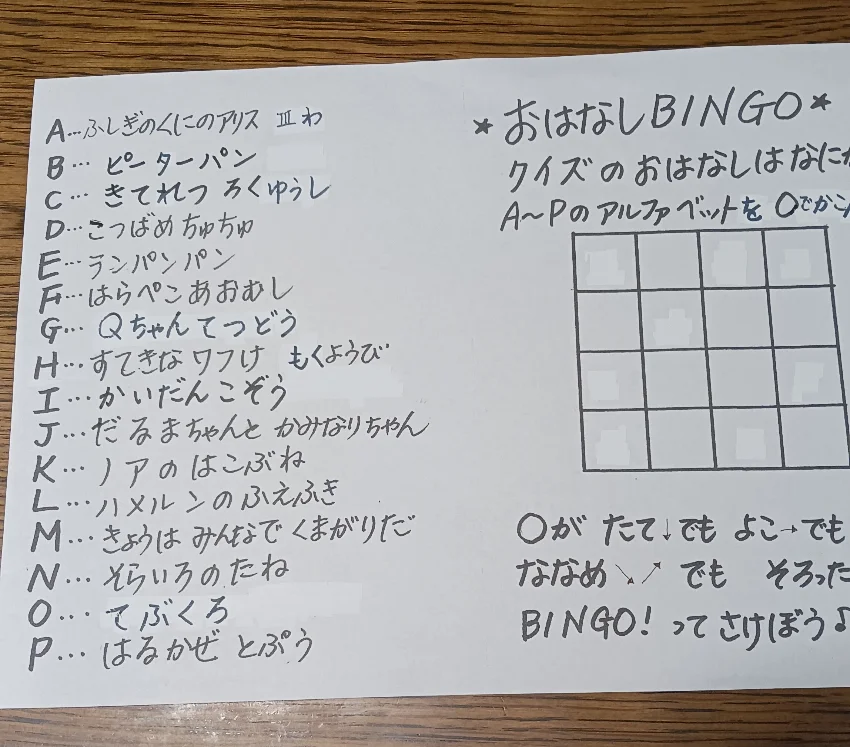 A…ふしぎのくにのアリス Ⅲわ
B… ピーターパン
C… きてれつ ろくゆうし
D…こつばめ ちゅちゅ
E…ランパンパン
F…はらぺこあおむし
G… Qちゃん てつどう
H…すてきな ワフけ もくようび
I…かいだん こぞう
J…だるまちゃんと かみなりちゃん
K… ノアの はこぶね
L…ハメルンの ふえふき
M…きょうは みんなで くまがりだ
N…そらいろのたね
O… てぶくろ
P… はるかぜ とぷう
*おはなしBINGO*
クイズ の おはなしは なに
A~Pの アルファベットを ○でかこ
○が たて↓でも よこ→でも
ななめ↘↗ でも そろった
BINGO! って さけぼう♪